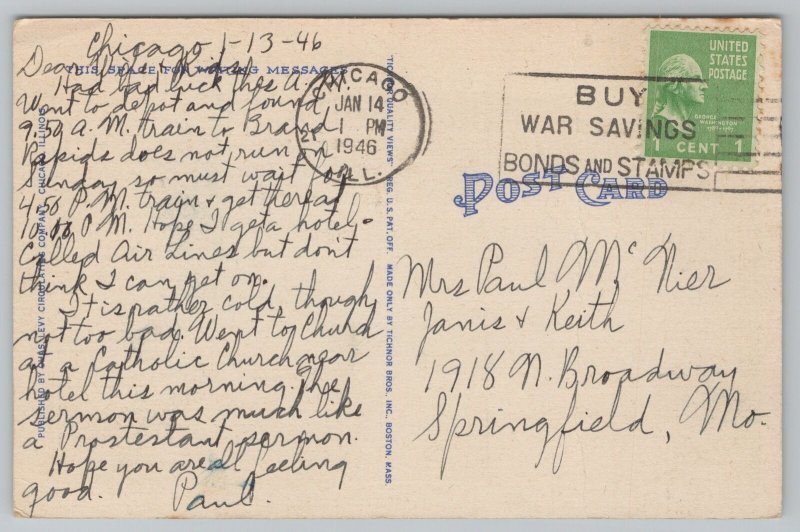 Chicago 1-13-46
Dear Wife & Kids,
THIS SPACE FOR WRITING MESSAGES
Had bad luck this A.M.
Went to depot and found
9:50 A.M. train to Grand
Rapids does not run on
Sunday so must wait on
4:50 P.M. train & get there at
10:00 P.M. Hope I get a hotel-
Called Air Lines but don't
think I can get on.
It is rather cold, though
not too bad. Went to Church
at a Catholic Church near
hotel this morning. The
sermon was much like
a Prostestant sermon.
Hope you are all feeling
good. Paul.
PUBLISHED BY CHAS. LEVY CIRCULATING COMPANY, CHICAGO, ILLINOIS
"TICHNOR QUALITY VIEWS," REG. U. S. PAT. OFF. MADE ONLY BY TICHNOR BROS., INC., BOSTON, MASS.
CHICAGO
JAN 14
1 PM
1946
ILL.
BUY
WAR SAVINGS
BONDS AND STAMPS
UNITED
STATES
POSTAGE
GEORGE
WASHINGTON
1789-1797
1 CENT 1
POST CARD
Mrs Paul McNier
Janis & Keith
1918 N. Broadway
Springfield, Mo.